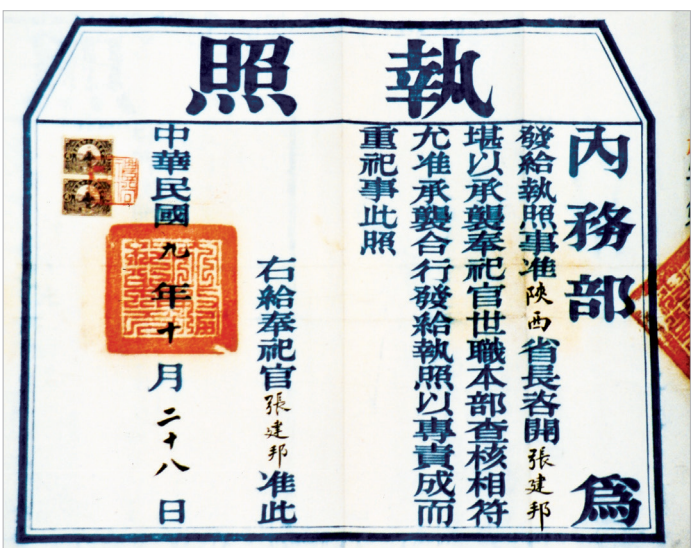 執照
內務部 為
發給執照事准陝西省長咨開張建邦
堪以承襲奉祀官世職本部查核相符
允准承襲合行發給執照以專責成而
重祀事此照
右給奉祀官張建邦准此
中華民國九年十月二十八日